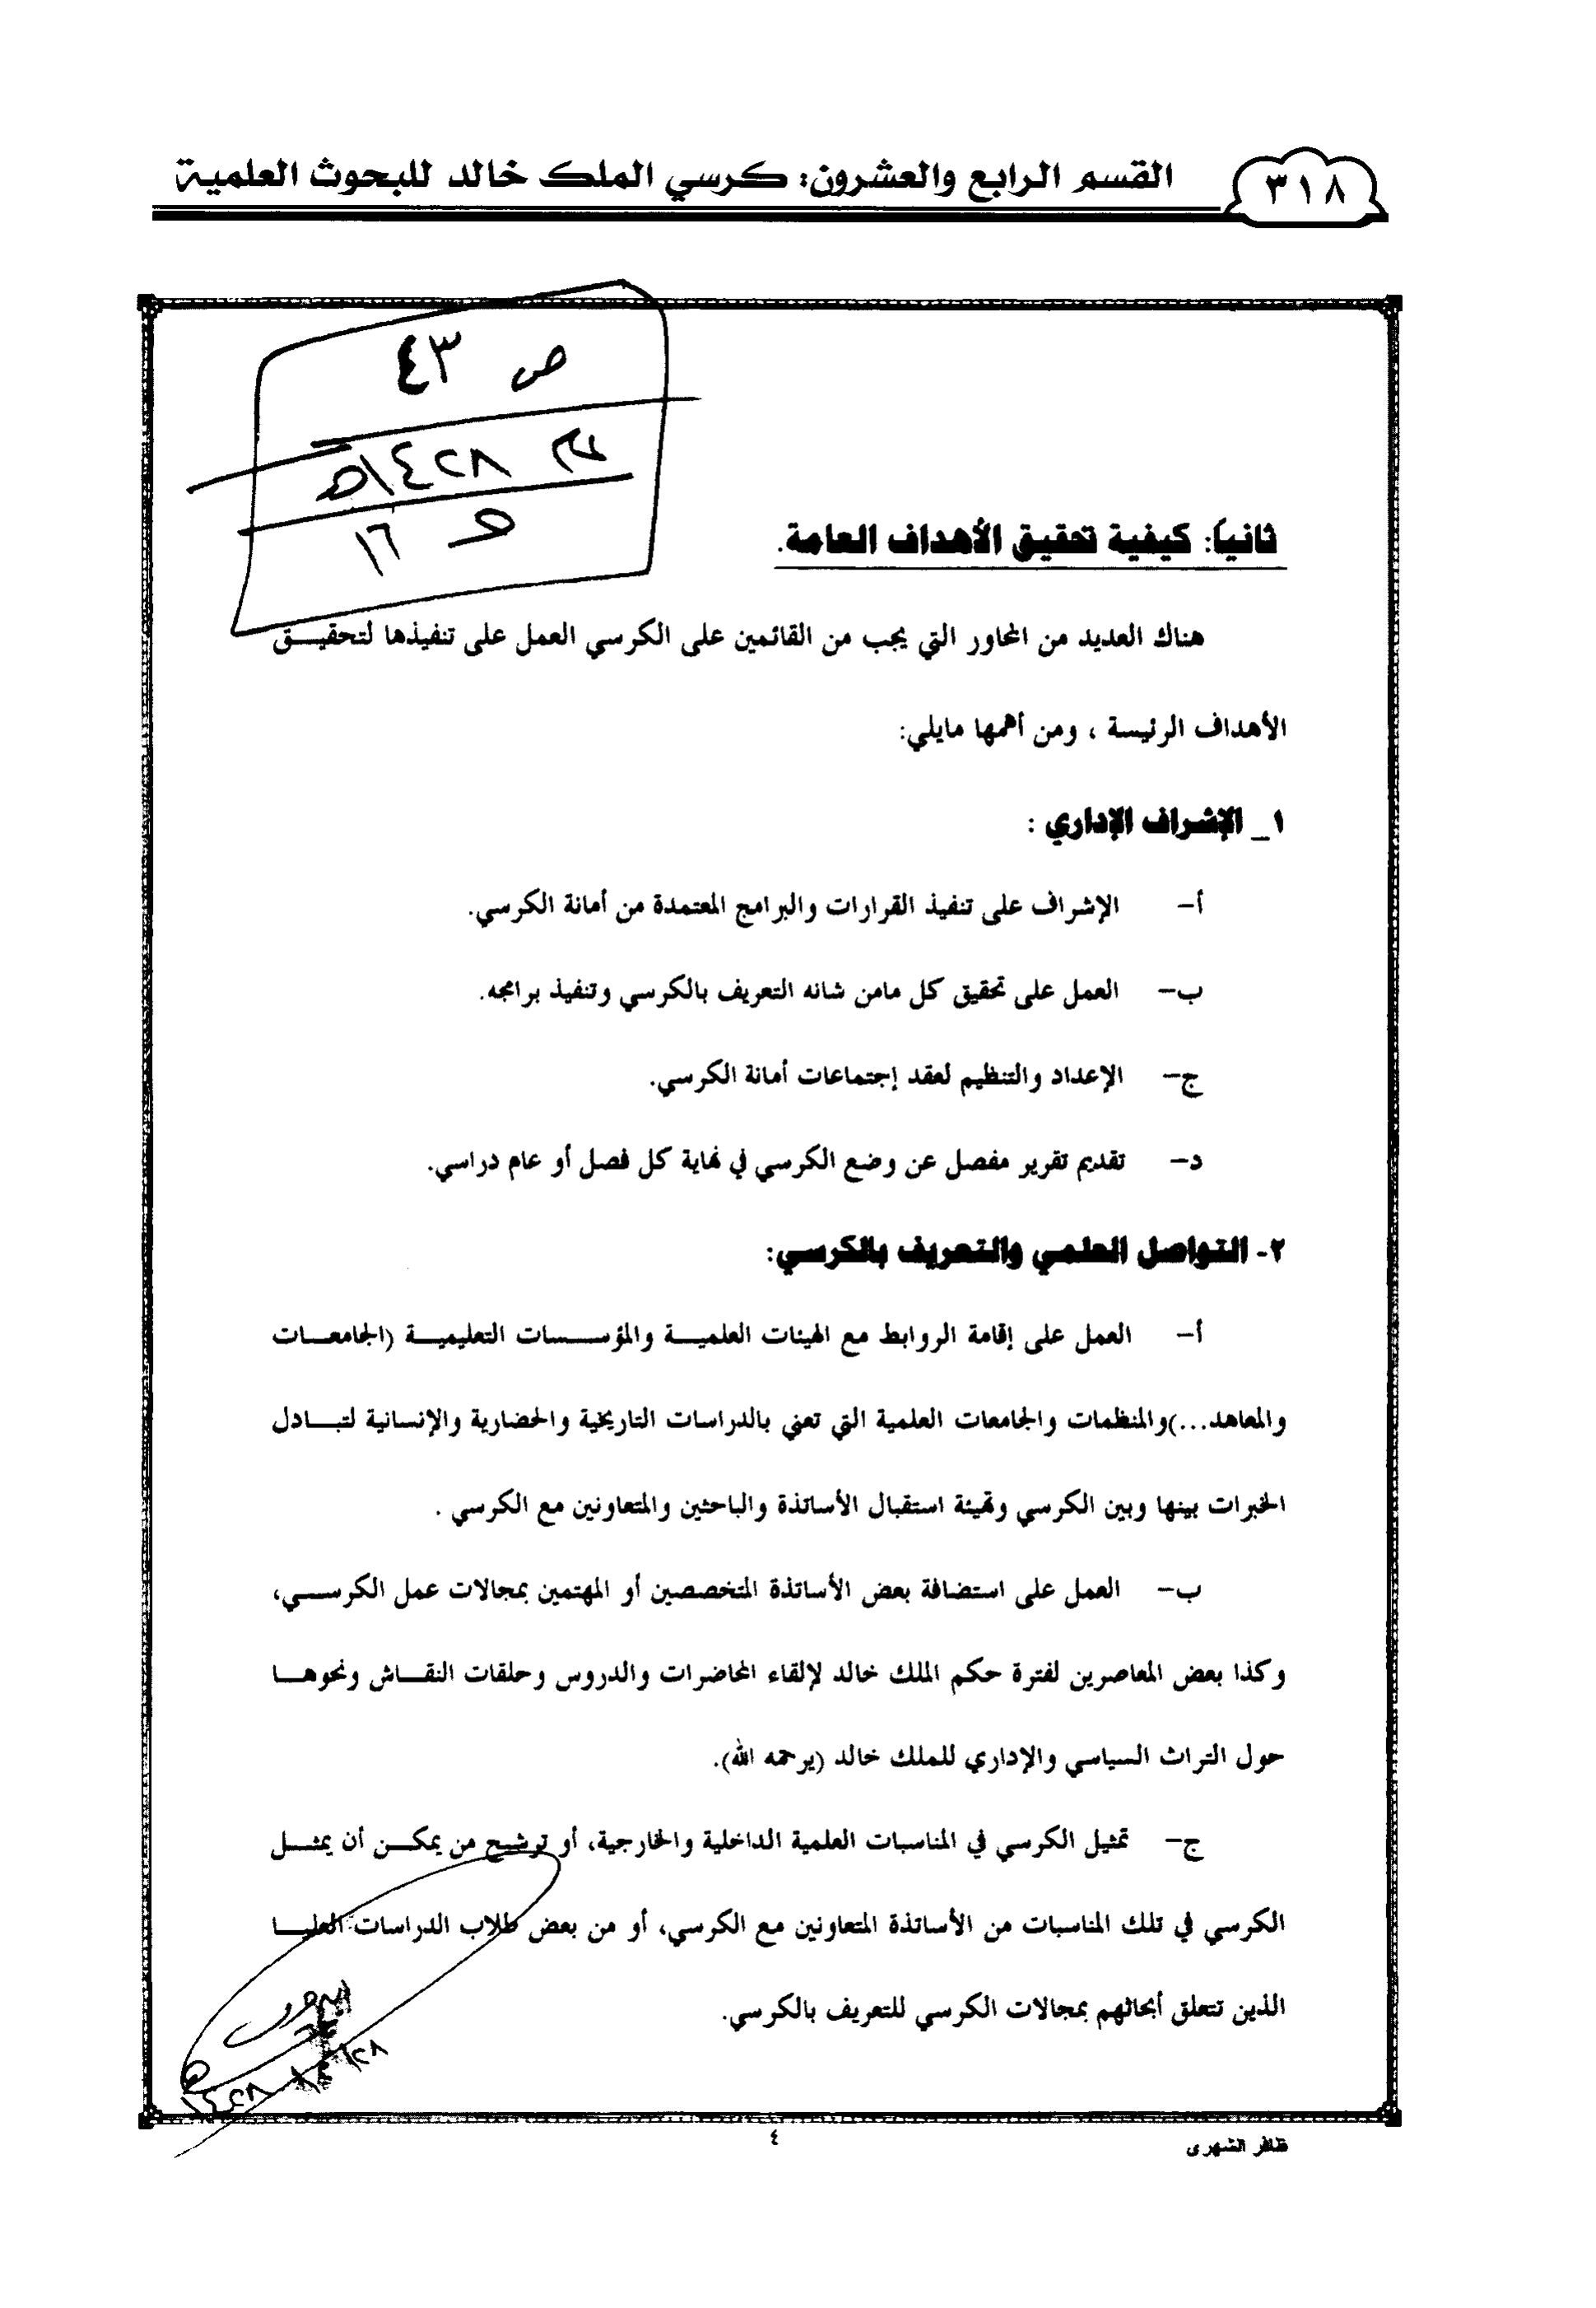 القسم الرابع والعشرون: كرسي الملك خالد للبحوث العلمية
٣١٨
ص ٤٣
١٤٢٨هـ
١٦
ثانياً: كيفية تحقيق الأهداف العامة.
هناك العديد من المحاور التي يجب من القائمين على الكرسي العمل على تنفيذها لتحقيـــق
الأهداف الرئيسة ، ومن أهمها مايلي:
١_ الإشراف الإداري :
أ- الإشراف على تنفيذ القرارات والبرامج المعتمدة من أمانة الكرسي.
ب- العمل على تحقيق كل مامن شانه التعريف بالكرسي وتنفيذ برامجه.
ج- الإعداد والتنظيم لعقد إجتماعات أمانة الكرسي.
د- تقديم تقرير مفصل عن وضع الكرسي في نهاية كل فصل أو عام دراسي.
٢- التواصل العلمي والتعريف بالكرسي:
أ- العمل على إقامة الروابط مع الهيئات العلميـــة والمؤســـسات التعليميـــة (الجامعـــات
والمعاهد...)والمنظمات والجامعات العلمية التي تعني بالدراسات التاريخية والحضارية والإنسانية لتبـــادل
الخبرات بينها وبين الكرسي وتهيئة استقبال الأساتذة والباحثين والمتعاونين مع الكرسي .
ب- العمل على استضافة بعض الأساتذة المتخصصين أو المهتمين بمجالات عمل الكرســـي،
وكذا بعض المعاصرين لفترة حكم الملك خالد لإلقاء المحاضرات والدروس وحلقات النقـــاش ونحوهـــا
حول التراث السياسي والإداري للملك خالد (يرحمه الله).
ج- تمثيل الكرسي في المناسبات العلمية الداخلية والخارجية، أو ترشيح من يمكـــن أن يمثـــل
الكرسي في تلك المناسبات من الأساتذة المتعاونين مع الكرسي، أو من بعض طلاب الدراسات العليـــا
الذين تتعلق أبحاثهم بمجالات الكرسي للتعريف بالكرسي.
٤
ظافر الشهري